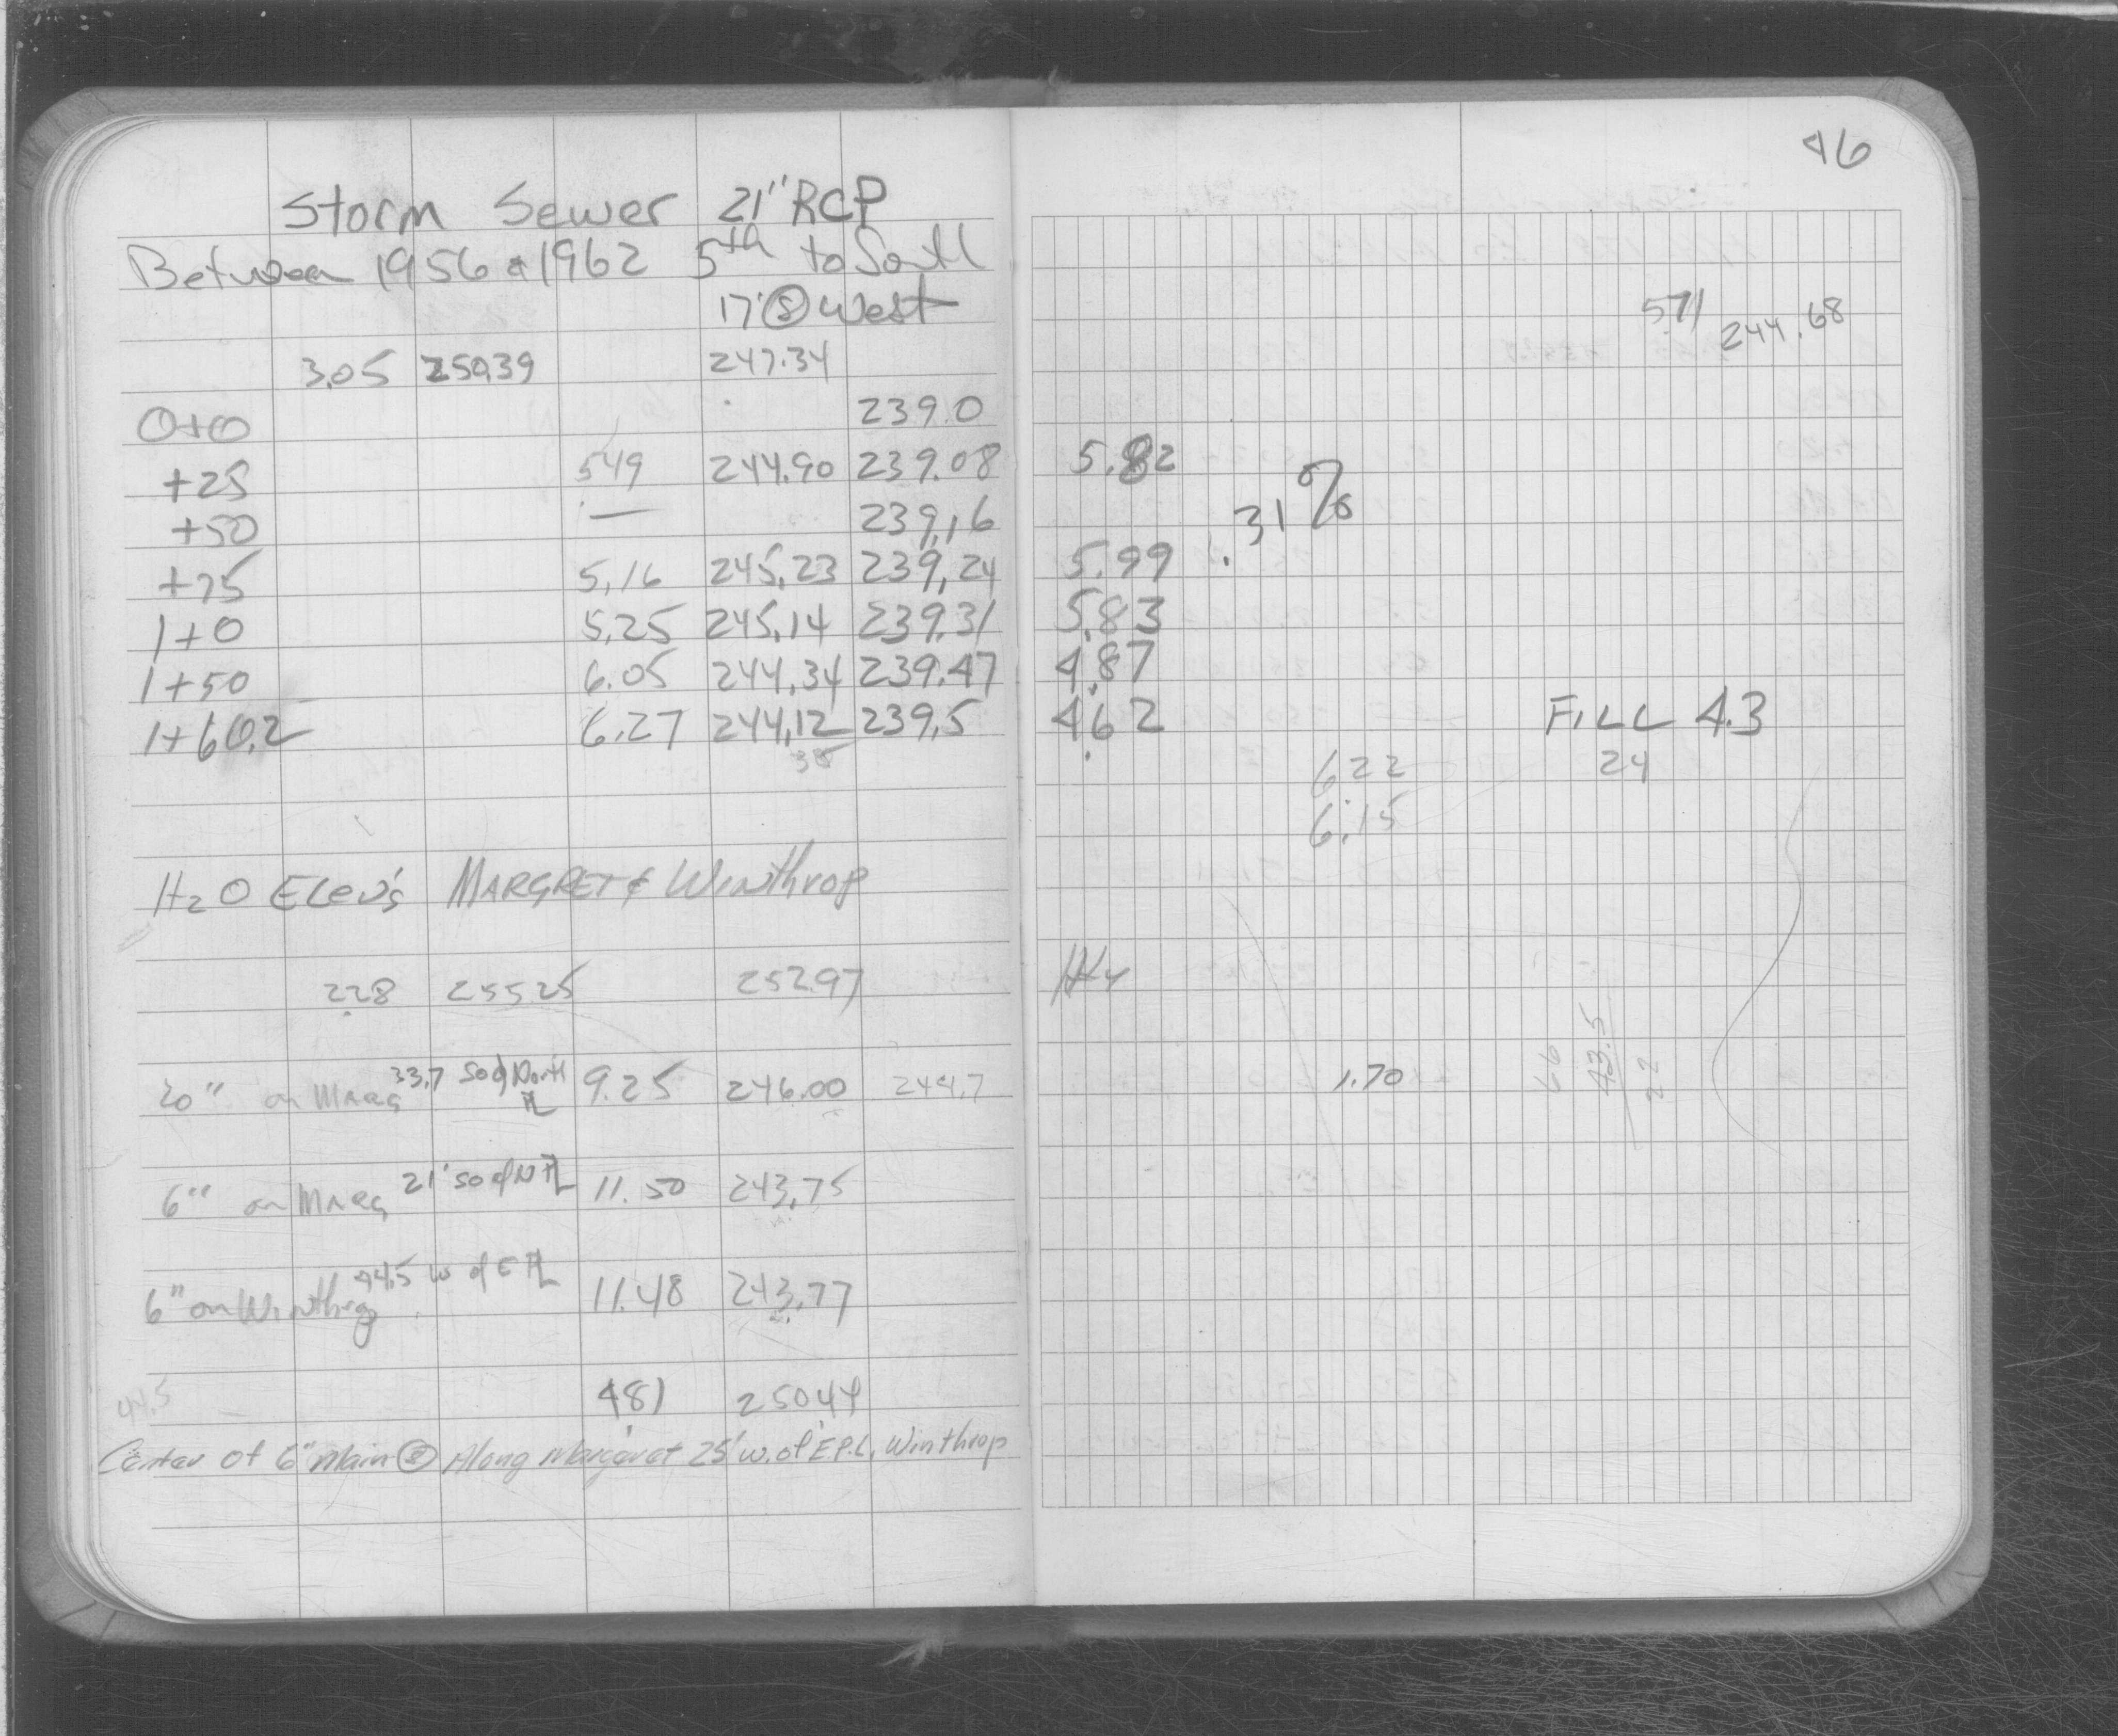 46
Storm Sewer 21" RCP
Between 1956 & 1962 5th to South
17' Ⓢ West
571 244.68
3.05 250.39 247.34
0+0 239.0
+25 549 244.90 239.08 5.82
+50 — 239.16 .31%
+75 5.16 245.23 239.24 5.99
1+0 5.25 245.14 239.31 5.83
1+50 6.05 244.34 239.47 4.87
1+60.2 6.27 244.12 239.5 4.62 FILL 4.3
38 622 24
6.15
H2O Elev's MARGRET & Winthrop
2.28 255.25 252.97
20" on Marg 33.7 So of North PL 9.25 246.00 244.7 1.70
66
43.5
22
6" on Marg 21' So of N PL 11.50 243.75
6" on Winthrop 44.5 W of E PL 11.48 243.77
4.81 250.44
44.5
Center of 6" Main Along Margaret 25' W. of E.P.L. Winthrop